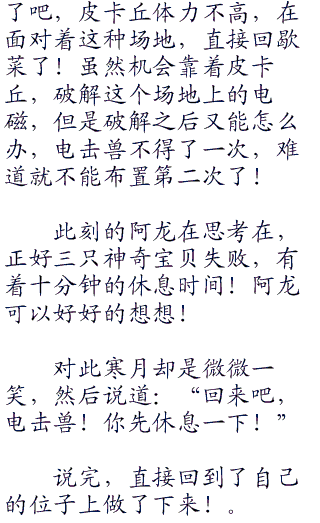 了吧，皮卡丘体力不高，在
面对着这种场地，直接回歇
菜了！虽然机会靠着皮卡
丘，破解这个场地上的电
磁，但是破解之后又能怎么
办，电击兽不得了一次，难
道就不能布置第二次了！
此刻的阿龙在思考在，
正好三只神奇宝贝失败，有
着十分钟的休息时间！阿龙
可以好好的想想！
对此寒月却是微微一
笑，然后说道：“回来吧，
电击兽！你先休息一下！”
说完，直接回到了自己
的位子上做了下来！。